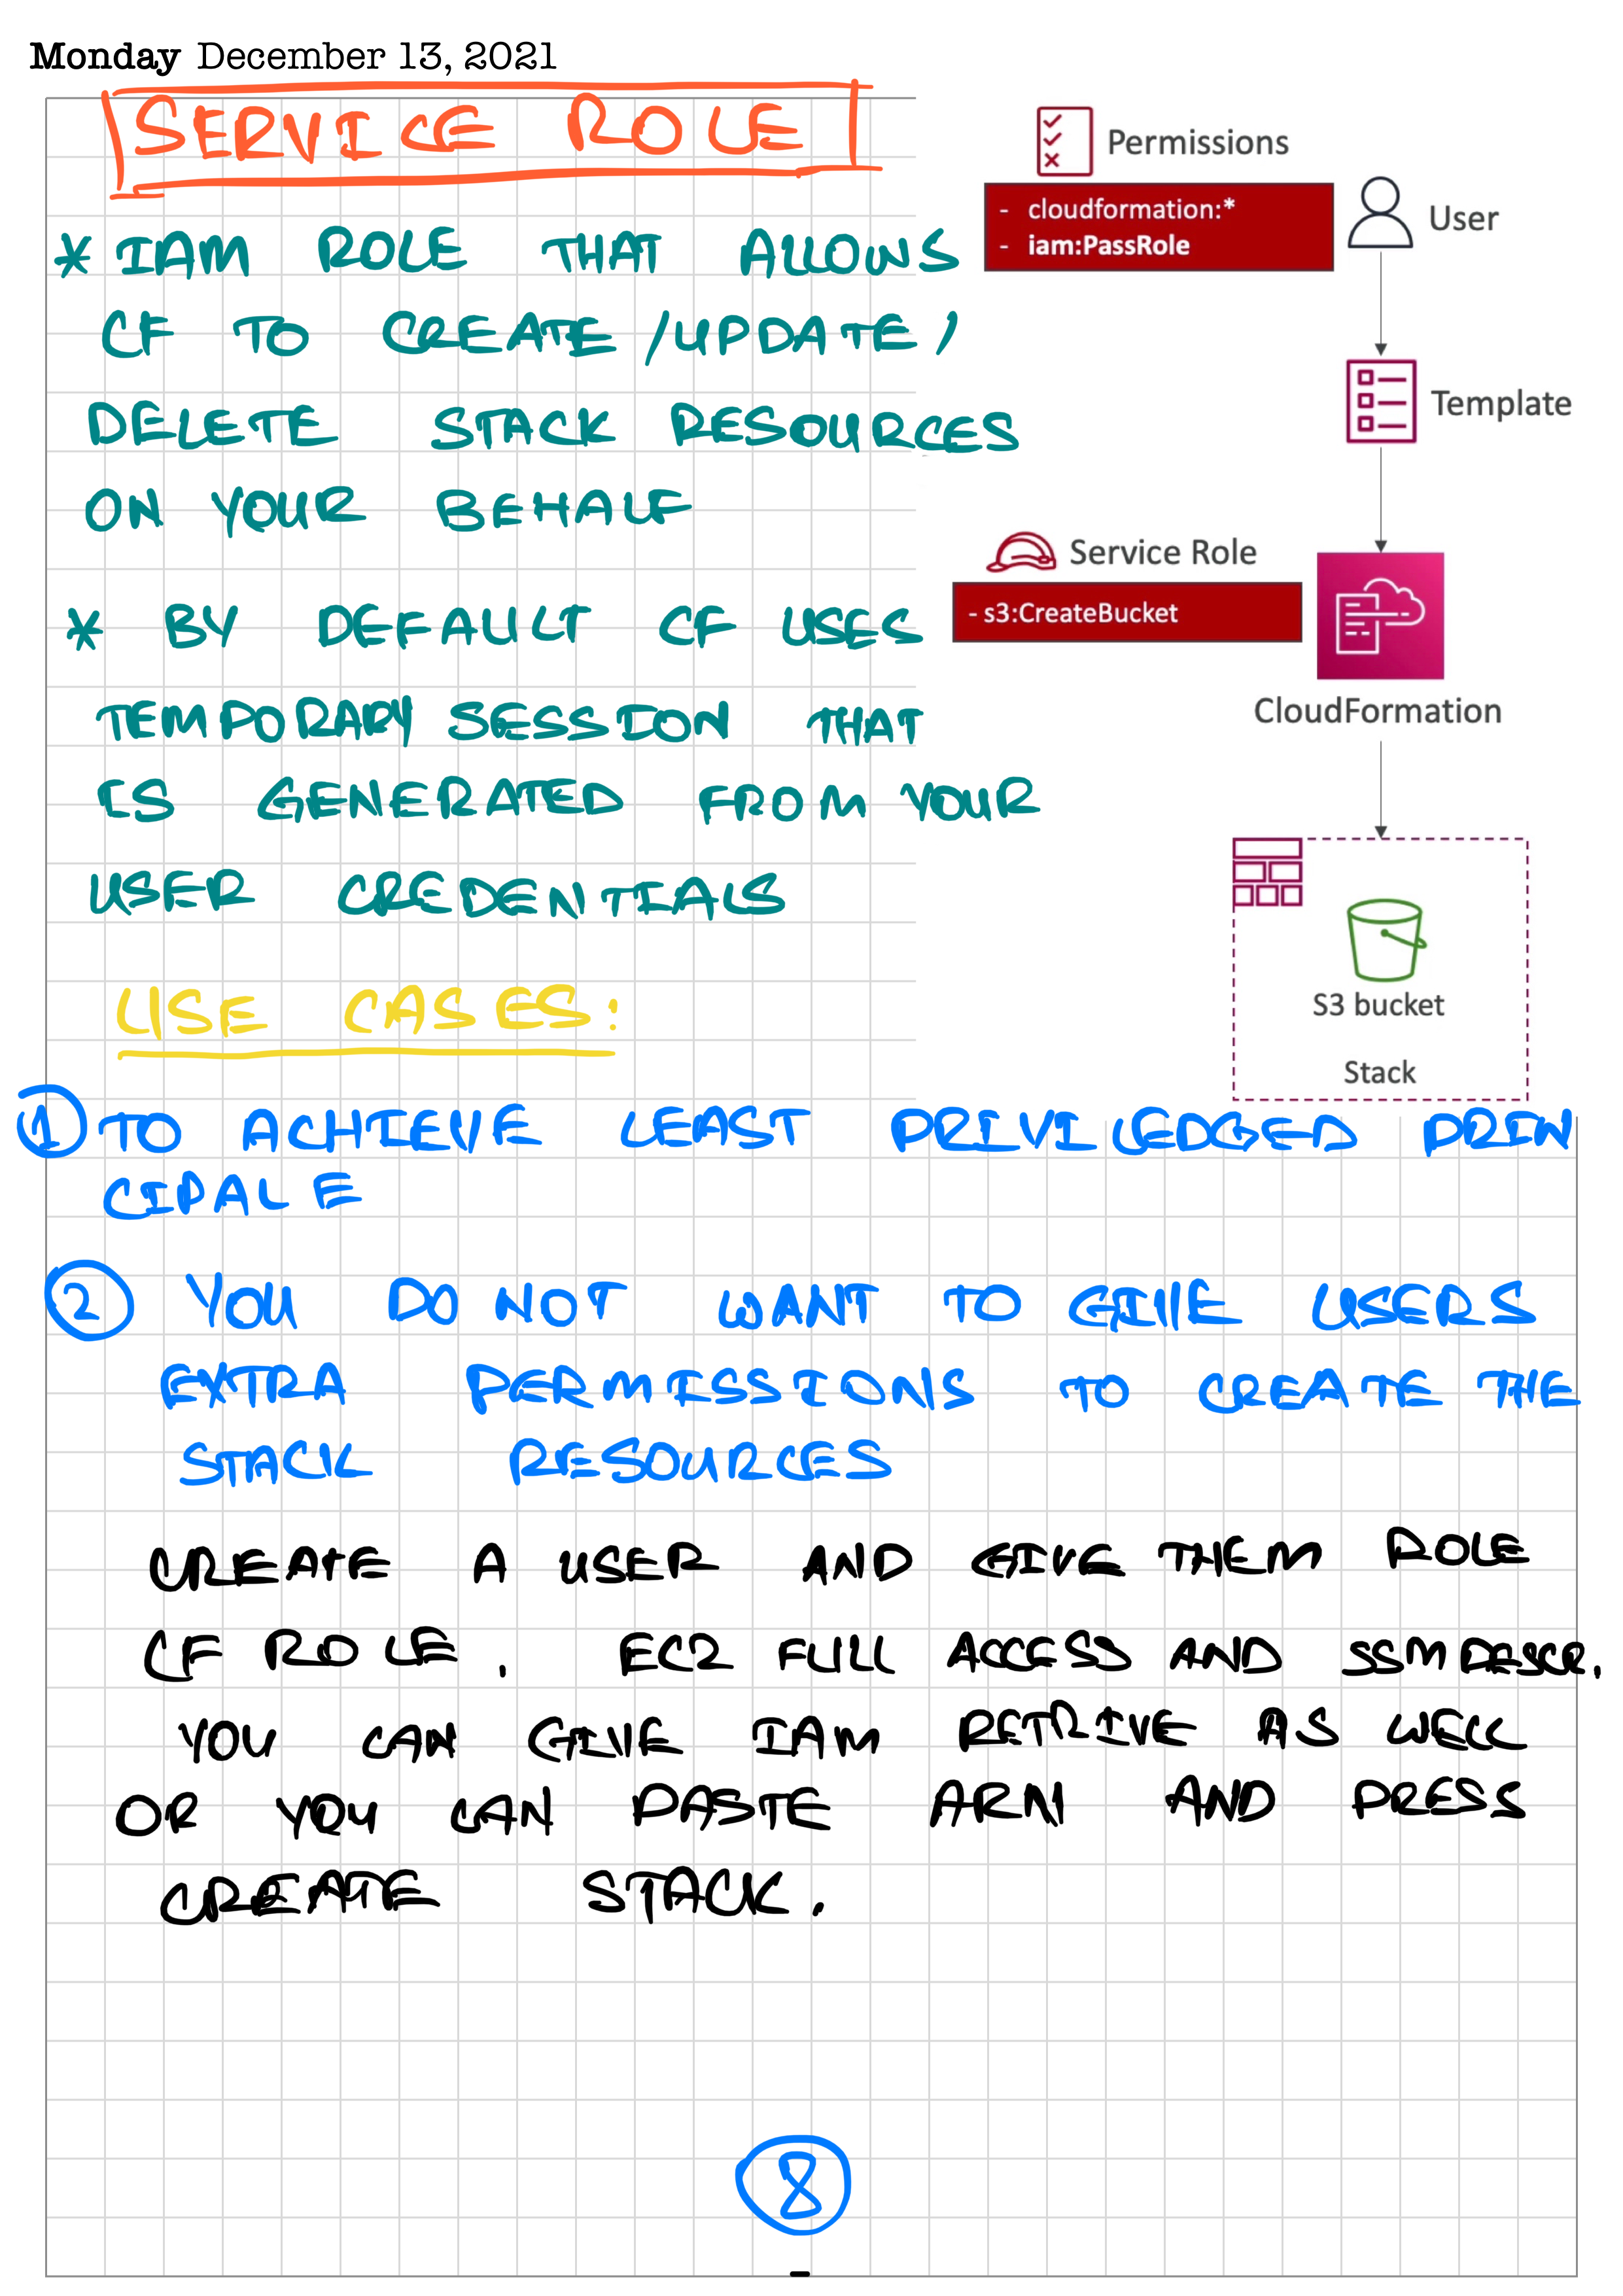 Monday December 13, 2021
SERVICE ROLE
* IAM ROLE THAT ALLOWS
CF TO CREATE /UPDATE/
DELETE STACK RESOURCES
ON YOUR BEHALF
* BY DEFAULT CF USES
TEMPORARY SESSION THAT
IS GENERATED FROM YOUR
USER CREDENTIALS
Permissions
- cloudformation:*
- iam:PassRole
User
Template
Service Role
- s3:CreateBucket
CloudFormation
S3 bucket
Stack
USE CASES:
1 TO ACHIEVE LEAST PRIVILEDGED PRIN
CIPALE
2 YOU DO NOT WANT TO GIVE USERS
EXTRA PERMISSIONS TO CREATE THE
STACK RESOURCES
CREATE A USER AND GIVE THEM ROLE
CF ROLE. EC2 FULL ACCESS AND SSM DESCR.
YOU CAN GIVE IAM RETRIVE AS WELL
OR YOU CAN PASTE ARN AND PRESS
CREATE STACK.
8